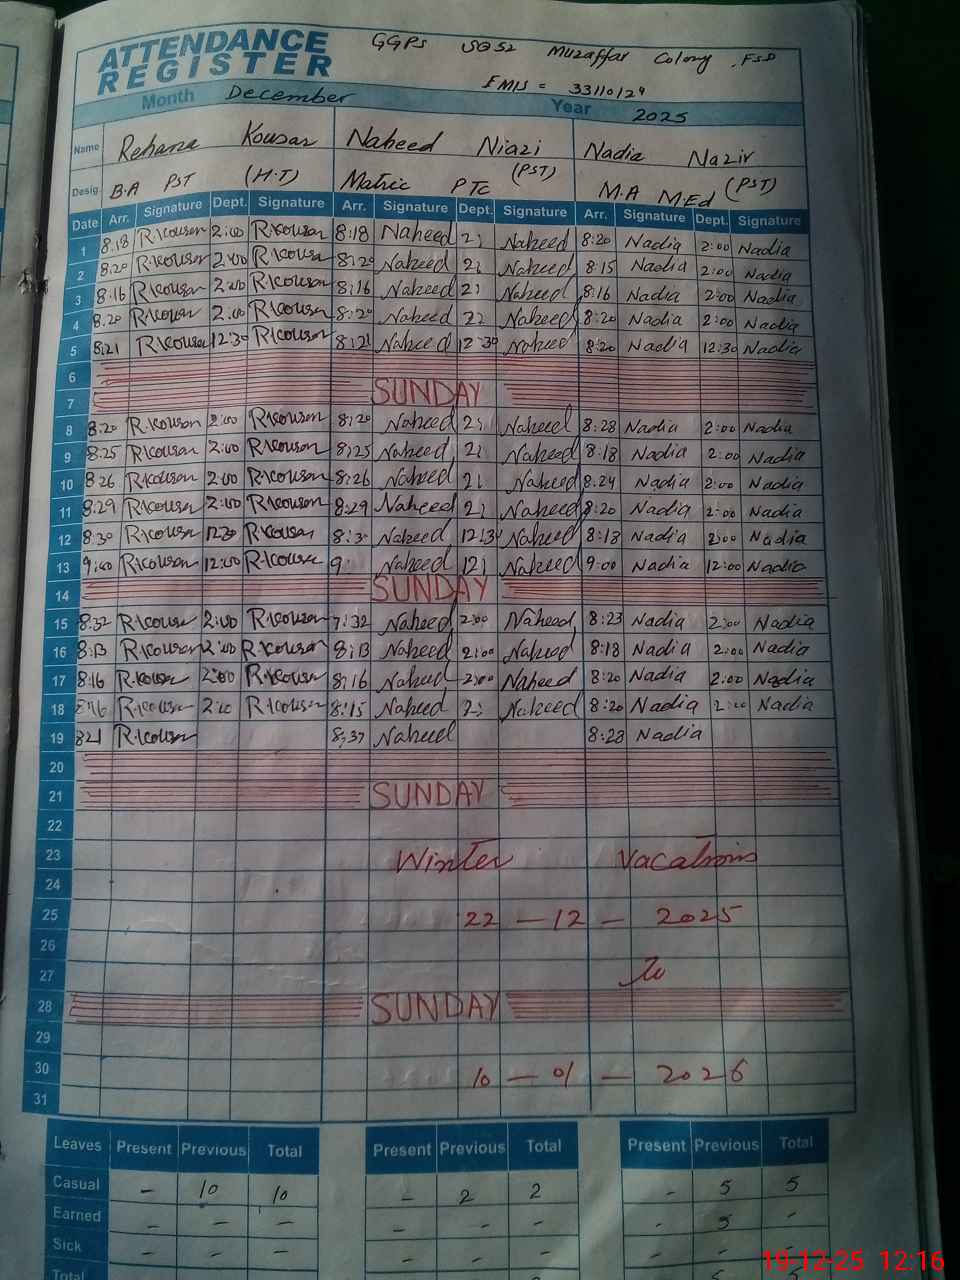 ATTENDANCE REGISTER
GGPS Muzaffar Colony, FSD
EMIS = 33110124
Month December Year 2025
Name Rehana Kousar Naheed Niazi Nadia Nazir
Desig. B.A PST (H.T) Matric PTC (PST) M.A M.Ed (PST)
Date Arr. Signature Dept. Signature Arr. Signature Dept. Signature Arr. Signature Dept. Signature
1 8:18 R.Kousar 2:00 R.Kousar 8:18 Naheed Naheed 8:20 Nadia 2:00 Nadia
2 8:20 R.Kousar 2:00 R.Kousar 8:20 Naheed Naheed 8:15 Nadia 2:00 Nadia
3 8:16 R.Kousar 2:00 R.Kousar 8:16 Naheed Naheed 8:16 Nadia 2:00 Nadia
4 8:20 R.Kousar 2:00 R.Kousar 8:20 Naheed Naheed 8:20 Nadia 2:00 Nadia
5 8:21 R.Kousar 12:30 R.Kousar 8:21 Naheed 12:30 Naheed 8:20 Nadia 12:30 Nadia
6
7 SUNDAY
8 8:20 R.Kousar 2:00 R.Kousar 8:20 Naheed Naheed 8:28 Nadia 2:00 Nadia
9 8:25 R.Kousar 2:00 R.Kousar 8:25 Naheed Naheed 8:18 Nadia 2:00 Nadia
10 8:26 R.Kousar 2:00 R.Kousar 8:26 Naheed Naheed 8:24 Nadia 2:00 Nadia
11 8:29 R.Kousar 2:00 R.Kousar 8:29 Naheed Naheed 8:20 Nadia 2:00 Nadia
12 8:30 R.Kousar 12:30 R.Kousar 8:30 Naheed 12:30 Naheed 8:18 Nadia 2:00 Nadia
13 9:00 R.Kousar 12:00 R.Kousar Naheed Naheed 9:00 Nadia 12:00 Nadia
14 SUNDAY
15 8:32 R.Kousar 2:00 R.Kousar 7:32 Naheed 2:00 Naheed 8:23 Nadia 2:00 Nadia
16 8:13 R.Kousar 2:00 R.Kousar 8:13 Naheed 2:00 Naheed 8:18 Nadia 2:00 Nadia
17 8:16 R.Kousar 2:00 R.Kousar 8:16 Naheed 2:00 Naheed 8:20 Nadia 2:00 Nadia
18 8:16 R.Kousar 2:00 R.Kousar 8:15 Naheed Naheed 8:20 Nadia 2:00 Nadia
19 8:21 R.Kousar 8:37 Naheed 8:23 Nadia
20
21 SUNDAY
22
23 Winter Vacations
24
25 22 - 12 - 2025
26
27 To
28 SUNDAY
29
30 10 - 01 - 2026
31
Leaves Present Previous Total Present Previous Total Present Previous Total
Casual - 10 10 - 2 2 - 5 5
Earned - - - - - - - 5 -
Sick - - - - - - - - -
Total
19-12-25 12:16